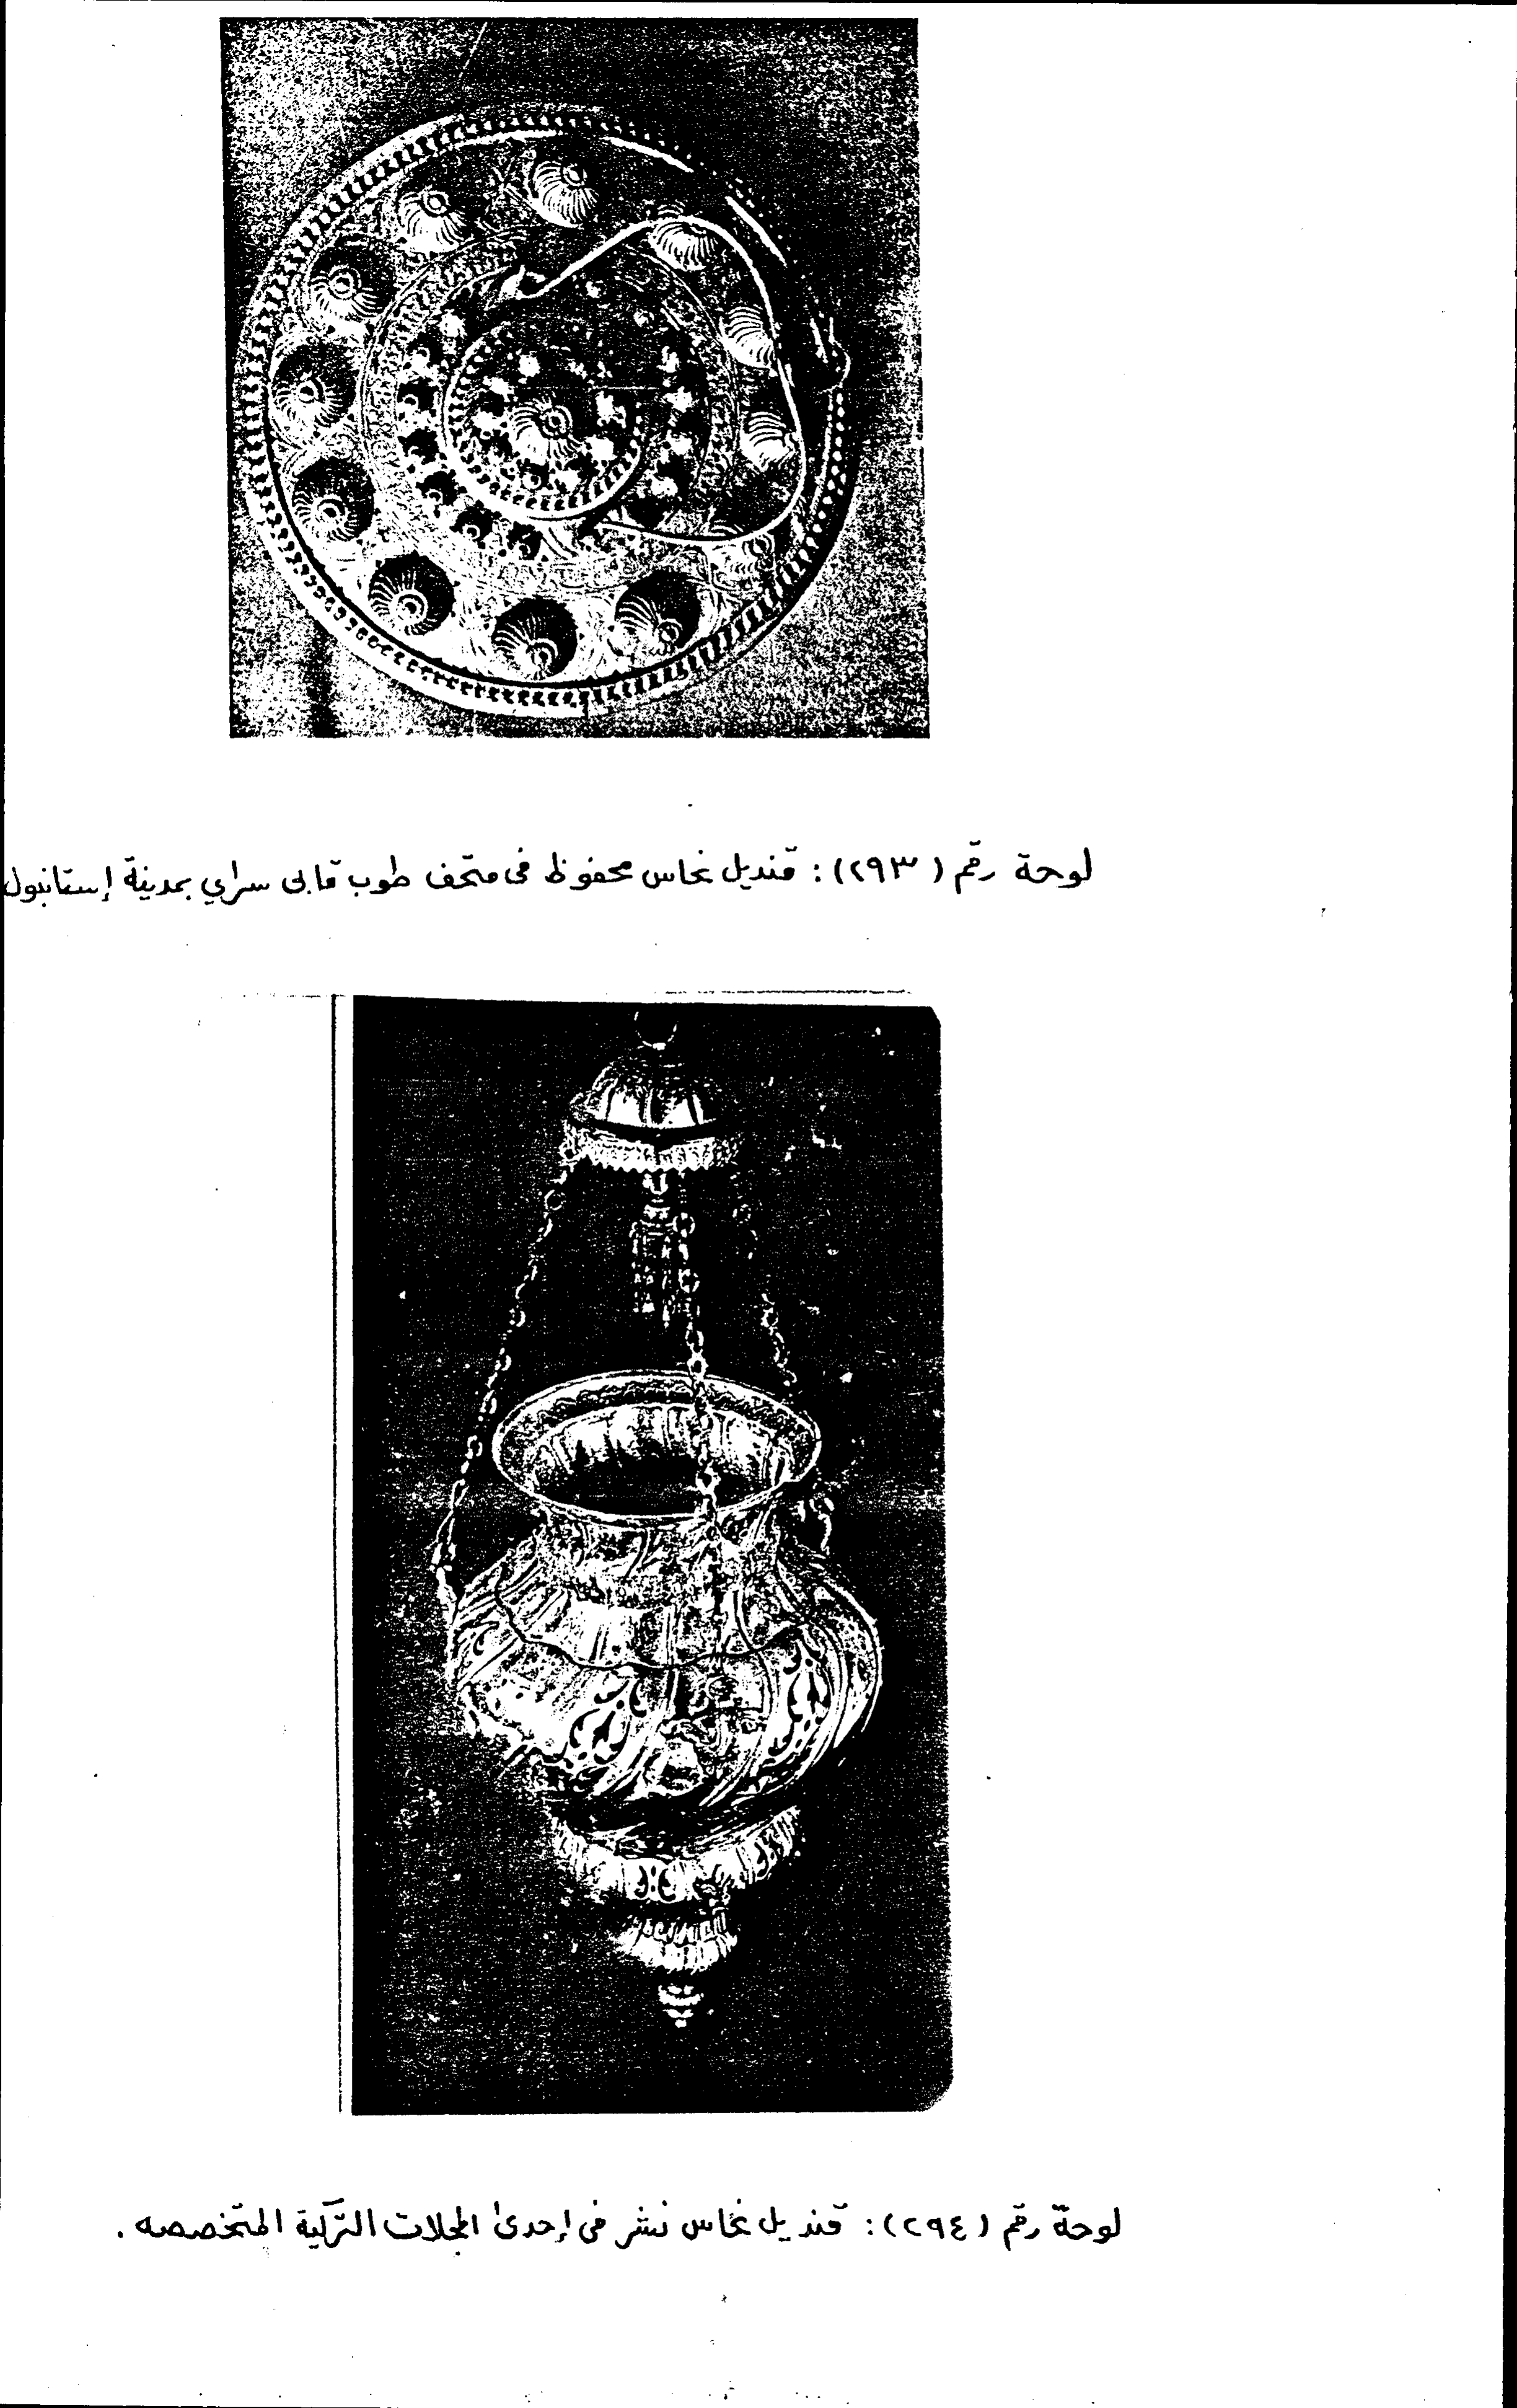 لوحة رقم (٢٩٣) : قنديل نحاس محفوظ فى متحف طوب قابى سراي بمدينة إستانبول
لوحة رقم (٢٩٤) : قنديل نحاس نشر فى إحدى المجلات التركية المتخصصه .